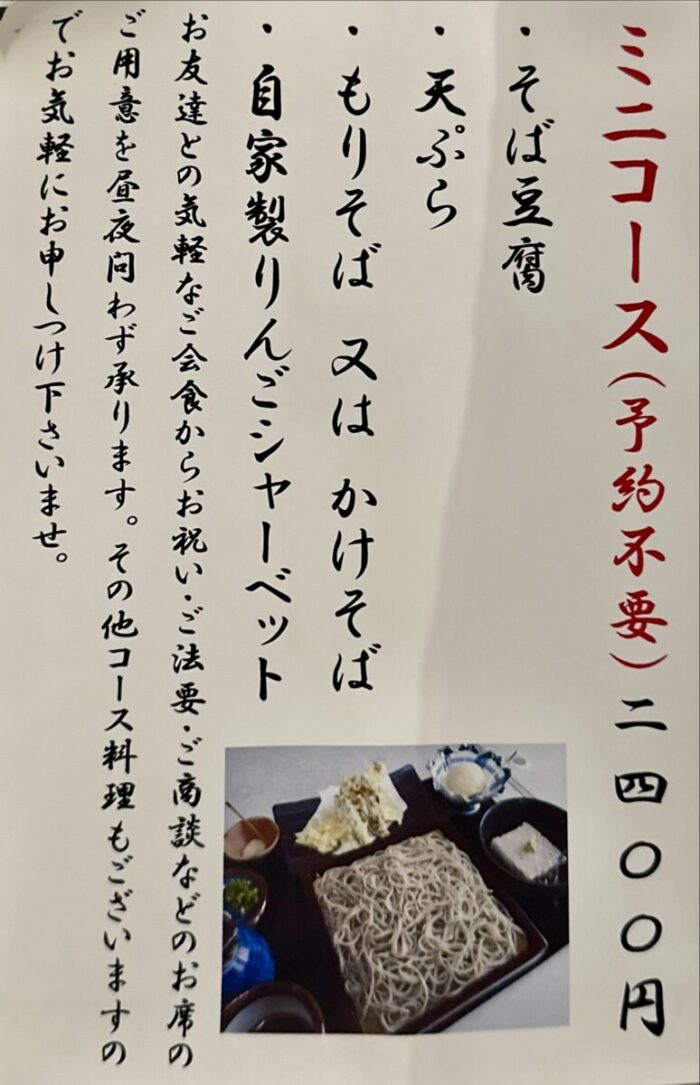 ミニコース（予約不要）二四〇〇円
・そば豆腐
・天ぷら
・もりそば 又は かけそば
・自家製りんごシャーベット
お友達との気軽なご会食からお祝い・ご法要・ご商談などのお席の
ご用意を昼夜問わず承ります。その他コース料理もございますの
でお気軽にお申しつけ下さいませ。